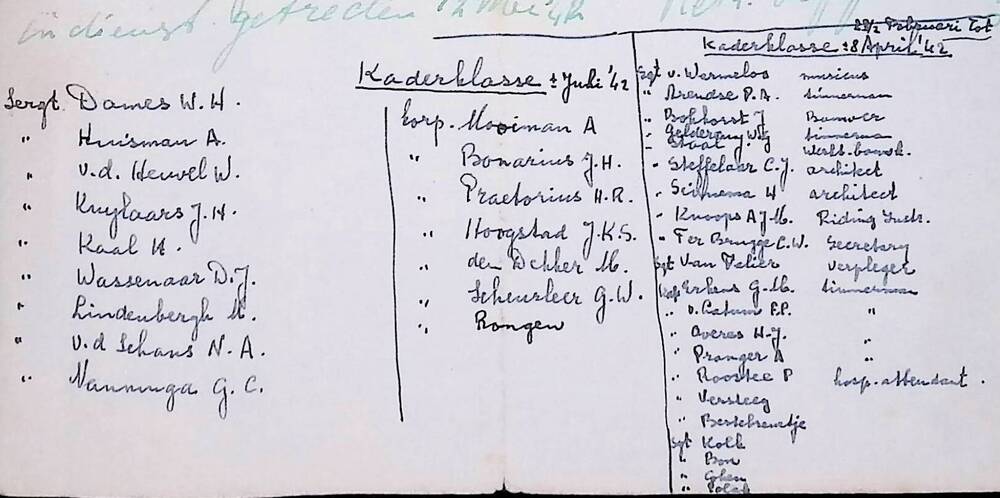 in dienst getreden 12 Mei '42
Sergt. Dames W. H.
" Huisman A.
" v.d. Heuvel W.
" Kuylaars J. H.
" Kaal H.
" Wassenaar D. J.
" Lindenbergh M.
" v.d Schans N. A.
" Nanninga G. C.
Kaderklasse ± Juli '42
Korp. Mooiman A
" Bonarius J. H.
" Praetorius H. R.
" Hoogstad J.K.S.
" den Dekker M.
" Scheurleer G. W.
" Rongen
Februari tot
Kaderklasse ±8 April '42
Sgt v. Wermelos musicus
" Arendse P. A. timmerman
" Bokhorst J
" timmerman
" Staal J.
" Steffelaar C. J. architect
" Sinnema H architect
" Knoops A J M. Riding
" Ter Brugge C. W. Secretary
Sgt Van Velier verpleger
Erkens G. M. timmerman
" v. P.P. "
" Averes H. J. "
" Pranger A "
" P hosp. attendant.
" Versteeg
"
Sgt Kolk
" Bon
" Cohen
" Polak